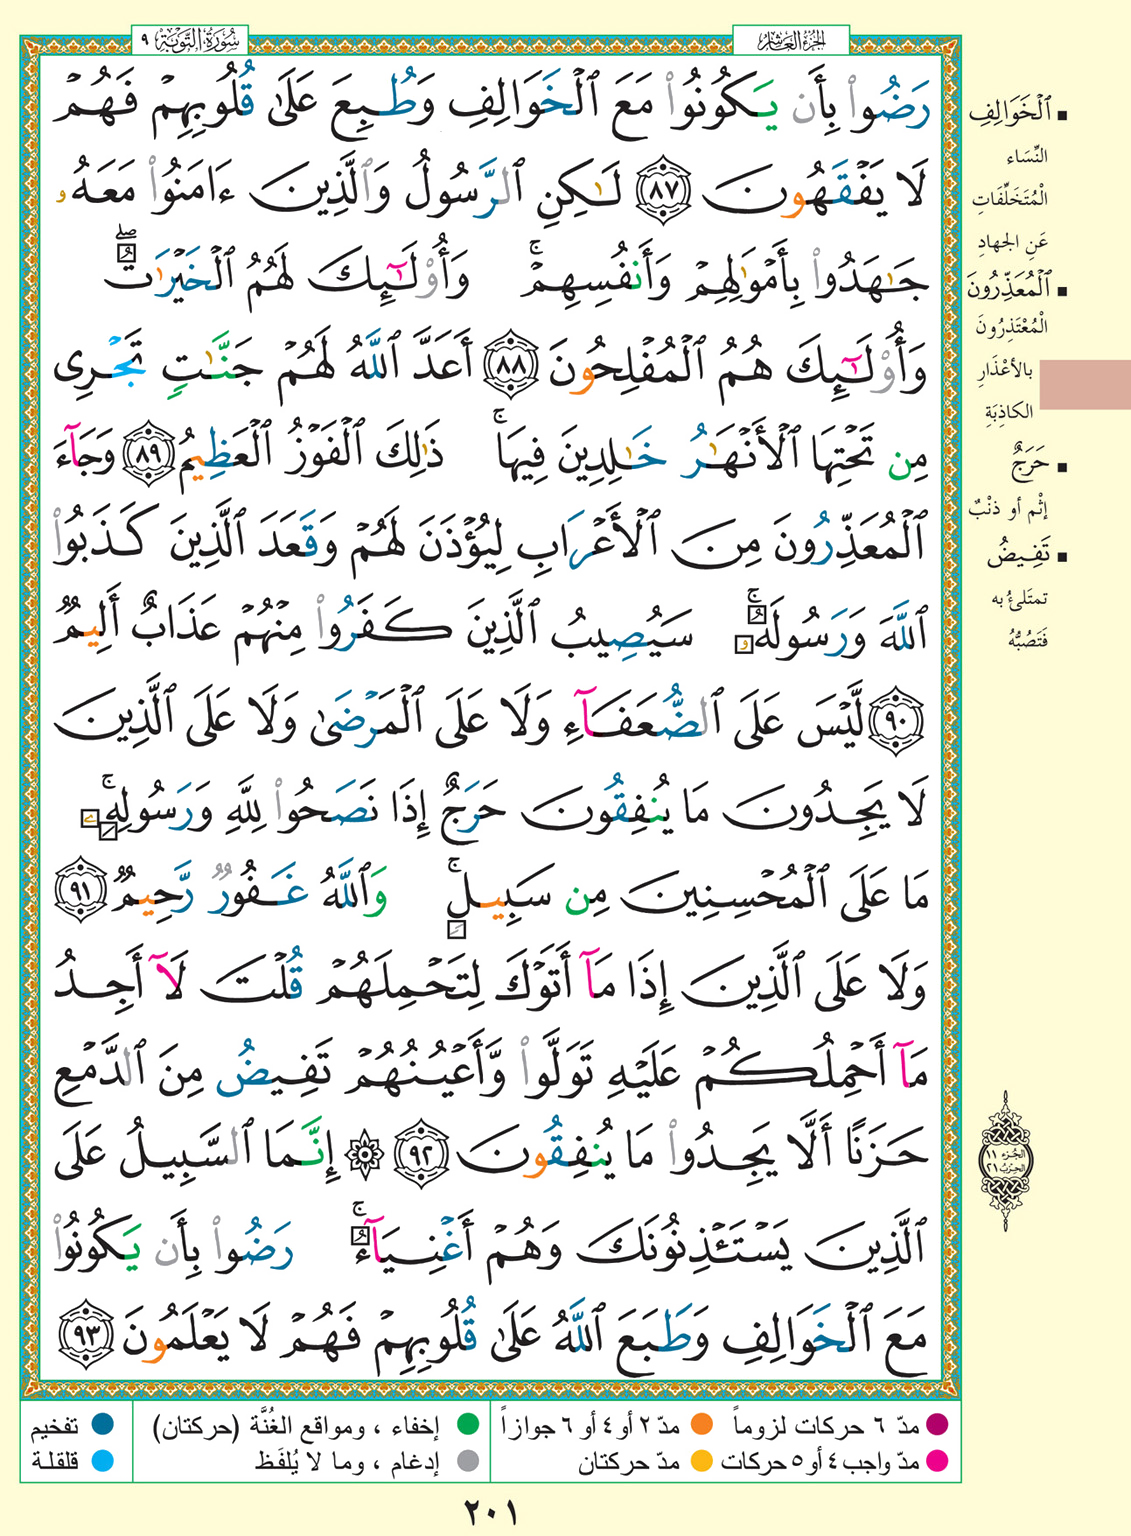 سُورَةُ التَّوْبَة ٩
الجُزْءُ العَاشِرُ
رَضُوا۟ بِأَن يَكُونُوا۟ مَعَ ٱلْخَوَالِفِ وَطُبِعَ عَلَىٰ قُلُوبِهِمْ فَهُمْ
لَا يَفْقَهُونَ ٨٧ لَـٰكِنِ ٱلرَّسُولُ وَٱلَّذِينَ ءَامَنُوا۟ مَعَهُۥ
جَـٰهَدُوا۟ بِأَمْوَٰلِهِمْ وَأَنفُسِهِمْ ۚ وَأُو۟لَـٰٓئِكَ لَهُمُ ٱلْخَيْرَٰتُ ۖ
وَأُو۟لَـٰٓئِكَ هُمُ ٱلْمُفْلِحُونَ ٨٨ أَعَدَّ ٱللَّهُ لَهُمْ جَنَّـٰتٍ تَجْرِى
مِن تَحْتِهَا ٱلْأَنْهَـٰرُ خَـٰلِدِينَ فِيهَا ۚ ذَٰلِكَ ٱلْفَوْزُ ٱلْعَظِيمُ ٨٩ وَجَآءَ
ٱلْمُعَذِّرُونَ مِنَ ٱلْأَعْرَابِ لِيُؤْذَنَ لَهُمْ وَقَعَدَ ٱلَّذِينَ كَذَبُوا۟
ٱللَّهَ وَرَسُولَهُۥ ۚ سَيُصِيبُ ٱلَّذِينَ كَفَرُوا۟ مِنْهُمْ عَذَابٌ أَلِيمٌ
٩٠ لَّيْسَ عَلَى ٱلضُّعَفَآءِ وَلَا عَلَى ٱلْمَرْضَىٰ وَلَا عَلَى ٱلَّذِينَ
لَا يَجِدُونَ مَا يُنفِقُونَ حَرَجٌ إِذَا نَصَحُوا۟ لِلَّهِ وَرَسُولِهِۦ ۚ
مَا عَلَى ٱلْمُحْسِنِينَ مِن سَبِيلٍ ۚ وَٱللَّهُ غَفُورٌ رَّحِيمٌ ٩١
وَلَا عَلَى ٱلَّذِينَ إِذَا مَآ أَتَوْكَ لِتَحْمِلَهُمْ قُلْتَ لَآ أَجِدُ
مَآ أَحْمِلُكُمْ عَلَيْهِ تَوَلَّوا۟ وَّأَعْيُنُهُمْ تَفِيضُ مِنَ ٱلدَّمْعِ
حَزَنًا أَلَّا يَجِدُوا۟ مَا يُنفِقُونَ ٩٢ ۞ إِنَّمَا ٱلسَّبِيلُ عَلَى
ٱلَّذِينَ يَسْتَـْٔذِنُونَكَ وَهُمْ أَغْنِيَآءُ ۚ رَضُوا۟ بِأَن يَكُونُوا۟
مَعَ ٱلْخَوَالِفِ وَطَبَعَ ٱللَّهُ عَلَىٰ قُلُوبِهِمْ فَهُمْ لَا يَعْلَمُونَ ٩٣
▪ ٱلْخَوَالِفِ
النِّسَاء
الْمُتَخَلِّفَاتِ
عَنِ الجهادِ
▪ ٱلْمُعَذِّرُونَ
الْمُعْتَذِرُونَ
بالأعْذَارِ
الكاذِبَةِ
▪ حَرَجٌ
إثْم أو ذنْبٌ
▪ تَفِيضُ
تمتَلئُ به
فَتَصُبُّهُ
الجُزء ١١
الحِزبُ ٢١
مدّ ٦ حركات لزوماً
مدّ ٢ أو ٤ أو ٦ جوازاً
إخفاء ، ومواقع الغُنَّة (حركتان)
تفخيم
مدّ واجب ٤ أو ٥ حركات
مدّ حركتان
إدغام ، وما لا يُلفَظ
قلقلة
٢٠١